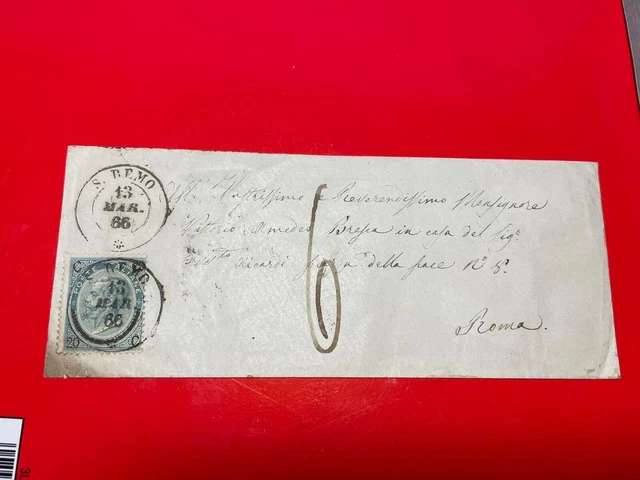 S. REMO
13
MAR.
66
All' Illustrissimo e Reverendissimo Monsignore
Vittorio Amedeo Bressa in casa del Sigr
Ricardi della pace N° 8.
Roma.
6
REMO
13
MAR
66
POSTE ITALIANE
20